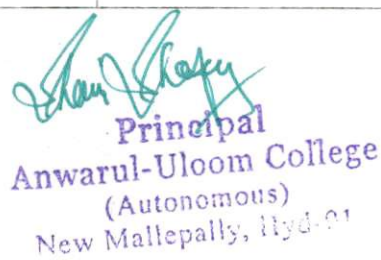 Principal
Anwarul-Uloom College
(Autonomous)
New Mallepally, Hyd-01